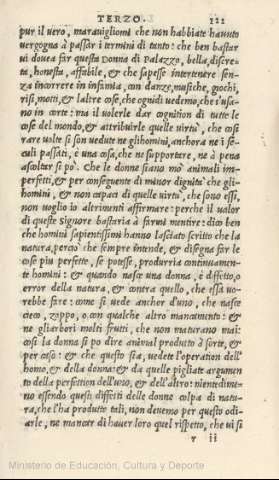 TERZO. 122
pur il vero, marauigliomi che non habbiate hauuto
uergogna à passar i termini di tanto: che ben bastar
ui douea far questa Donna di Palazzo, bella, discre-
ta, honesta, affabile, & che sapesse intertenere sen-
za incorrere in infamia, con danze, musiche, giochi,
risi, motti, & l'altre cose, che ogni dì uedemo, che s'usa-
no in corte: ma il uolerle dar cognition di tutte le
cose del mondo, & attribuirle quelle uirtù, che così
rare uolte si son uedute ne gli homini, anchora ne i se-
culi passati, è una cosa, che ne supportare, ne à pena
ascoltar si pò. Che le donne siano mò animali im-
perfetti, & per conseguente di minor dignità che gli
homini, & non capaci di quelle uirtù, che sono essi,
non uoglio io altrimenti affirmare: perche il ualor
di queste signore bastaria à farmi mentire: dico ben
che homini sapientissimi hanno lasciato scritto che la
natura, percio che sempre intende, & disegna far le
cose piu perfette, se potesse, produrria continuamen-
te homini: & quando nasce una donna, è diffetto, o
error della natura, & contra quello, che essa uo-
rebbe fare: come si uede anchor d'uno, che nasce
cieco, zoppo, o con qualche altro mancamento: &
ne gli arbori molti frutti, che non maturano mai:
così la donna si po dire animal produtto à sorte, &
per caso: & che questo sia, uedete l'operation dell'
homo, & della donna: & da quelle pigliate argumen
to della perfettion dell'uno, & dell'altro: nientedime-
no essendo questi diffetti delle donne colpa di natu-
ra, che l'ha produtte tali, non deuemo per questo odi-
arle, ne mancar di hauer loro quel rispetto, che ui si
v ii
Ministerio de Educación, Cultura y Deporte